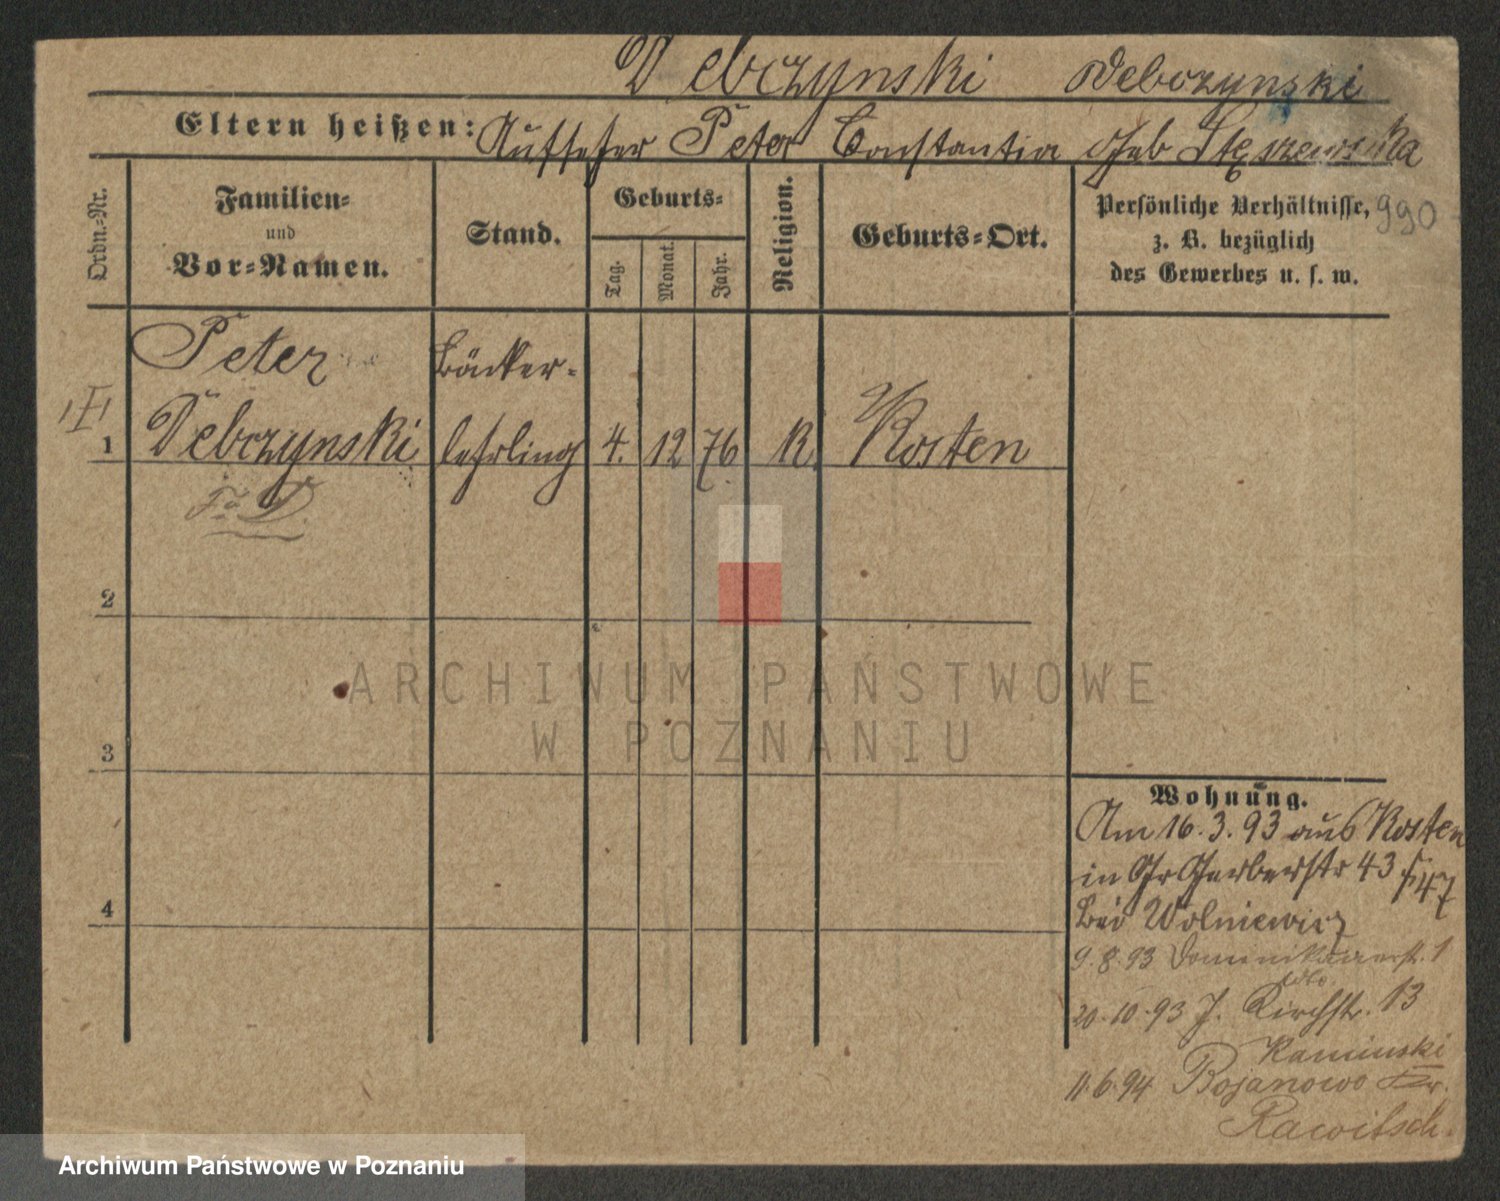 Debczynski Debczynski
Eltern heißen: Aufseher Peter Constantia geb Stęszewska
Ordn.-Nr.
Familien-
und
Vor-Namen.
Stand.
Geburts-
Tag.
Monat.
Jahr.
Religion.
Geburts-Ort.
Persönliche Verhältnisse, 990
z. B. bezüglich
des Gewerbes u. s. w.
Peter Bäcker-
1 Debczynski lehrling 4. 12 76 K Kosten
2
3
4
Wohnung.
Am 16.3.93 aus Kosten
in Gr Gerberstr 43 47
bei Wolniewicz
9.8.93 Dominikanerstr. 1
20.10.93 J. Kirchstr. 13
Kaminski
11.6.94 Bojanowo Kr.
Rawitsch.
ARCHIWUM PAŃSTWOWE
W POZNANIU
Archiwum Państwowe w Poznaniu